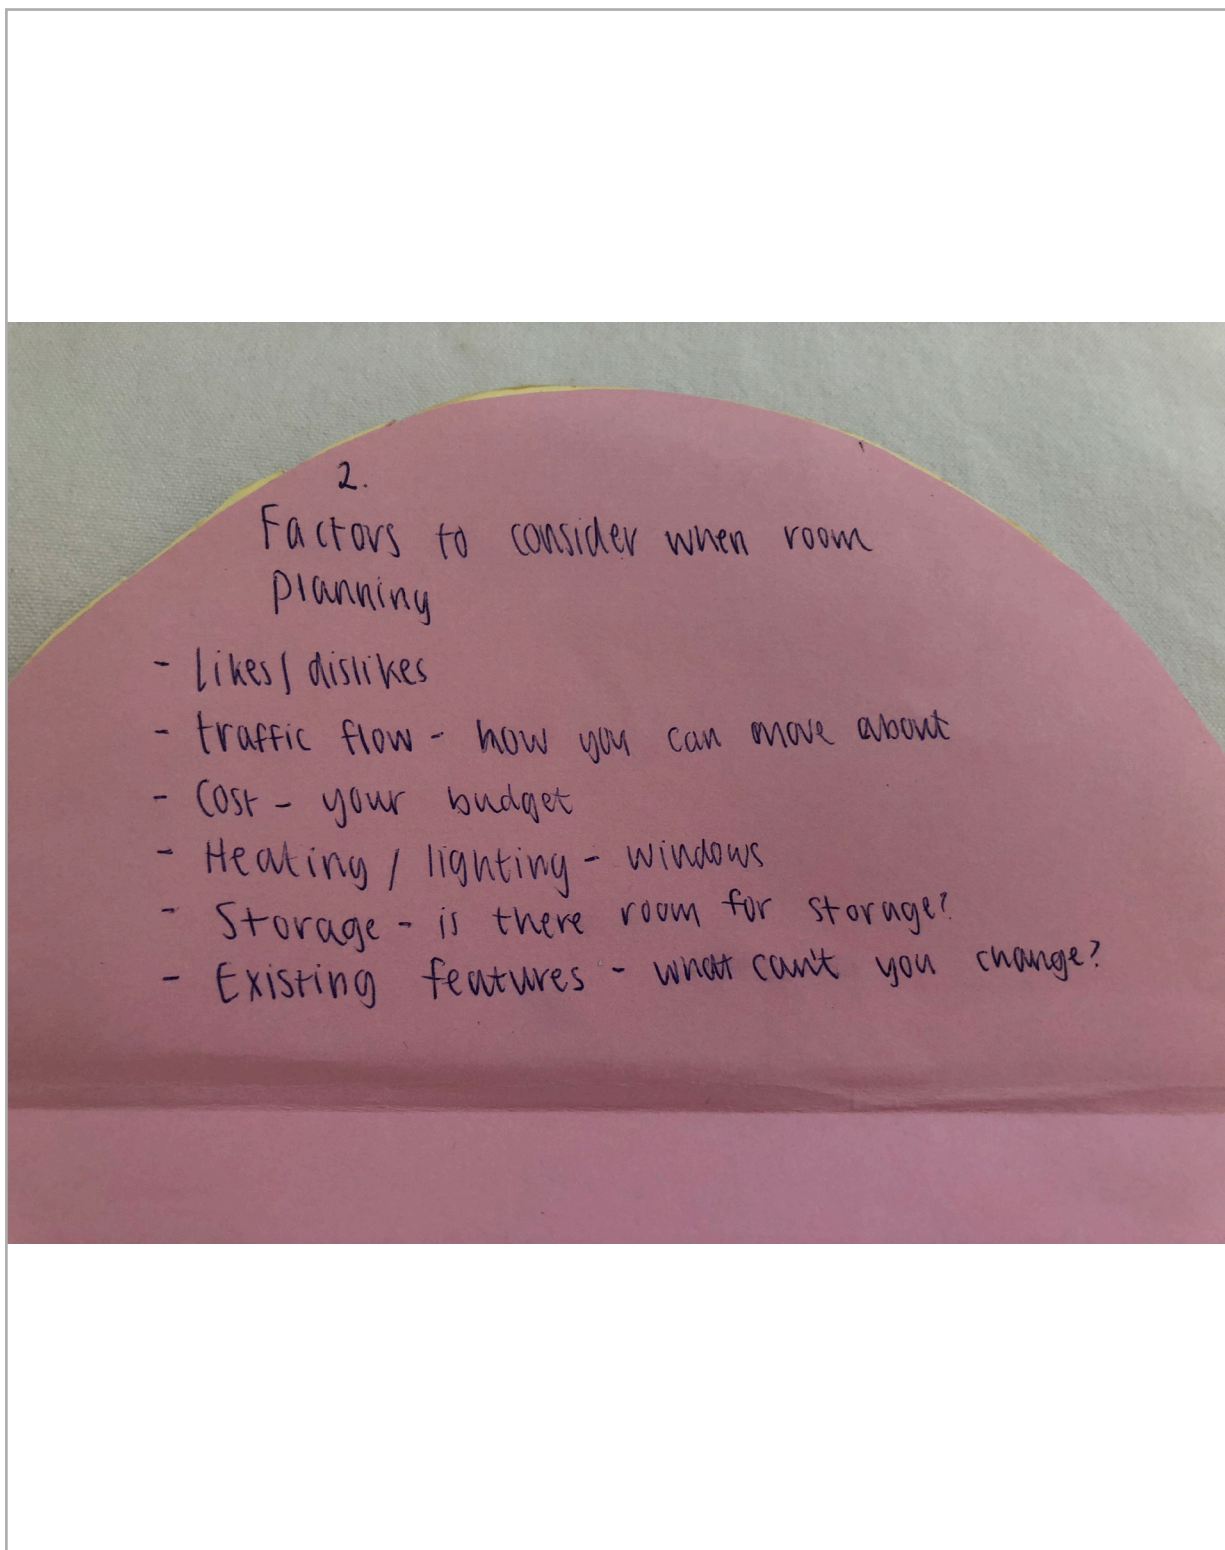 2.
Factors to consider when room
planning
- likes/dislikes
- traffic flow - how you can move about
- Cost - your budget
- Heating / lighting - windows
- Storage - is there room for storage?
- Existing features - what can't you change?